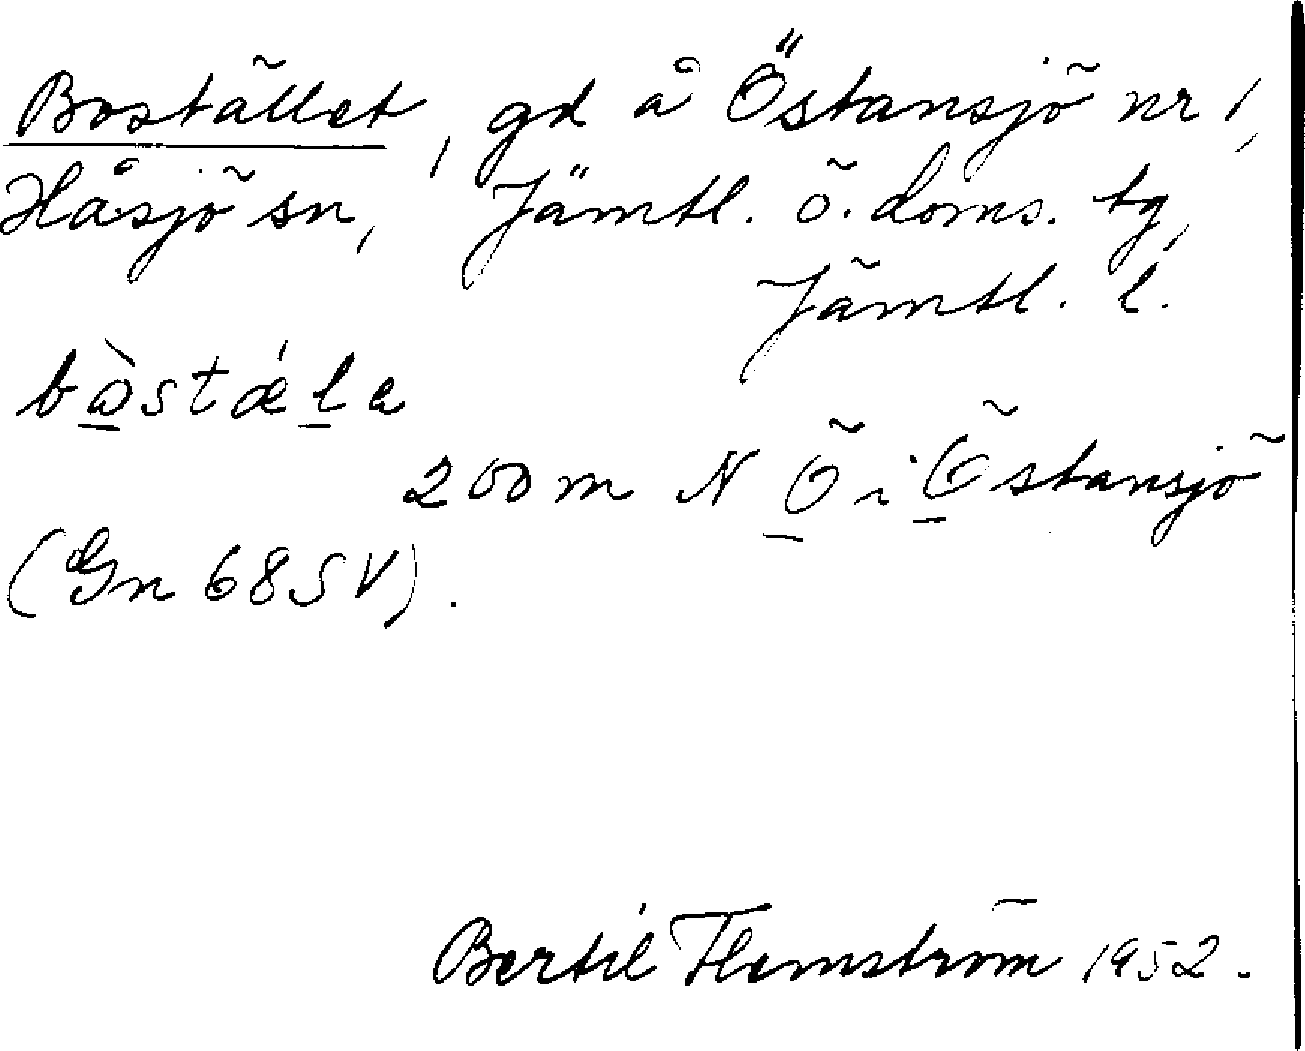 Bostället, gd å Östansjö nr 1,
Håsjö sn, Jämtl. ö. doms. tg,
Jämtl. l.
bòstǽla
200 m N Ö i Östansjö
(Gn 68 SV).
Bertil Flemström 1952.